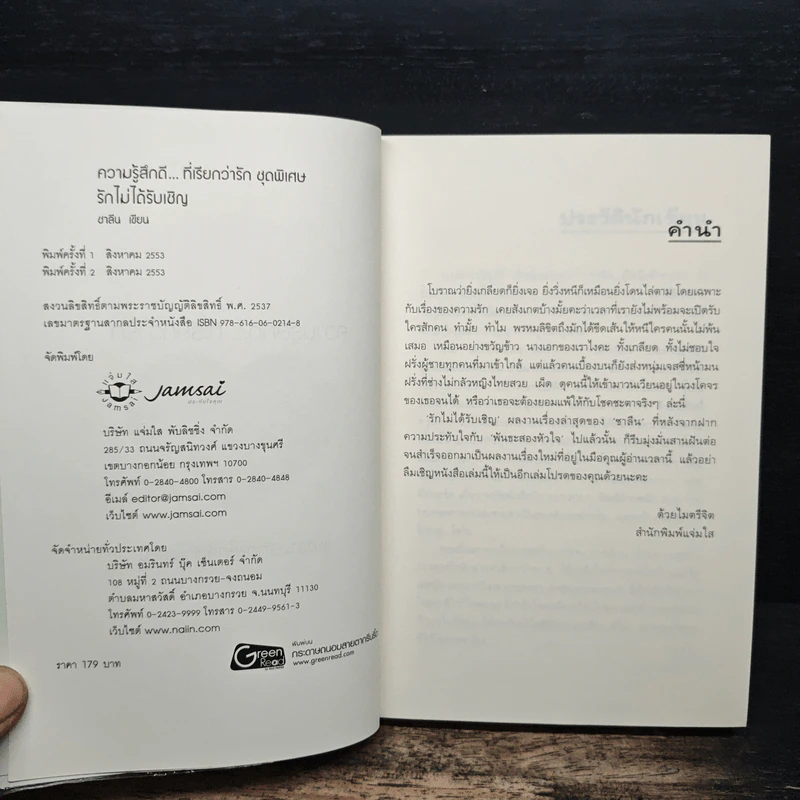 ความรู้สึกดี... ที่เรียกว่ารัก ชุดพิเศษ
รักไม่ได้รับเชิญ
ชาลีน เขียน
พิมพ์ครั้งที่ 1 สิงหาคม 2553
พิมพ์ครั้งที่ 2 สิงหาคม 2553
สงวนลิขสิทธิ์ตามพระราชบัญญัติลิขสิทธิ์ พ.ศ. 2537
เลขมาตรฐานสากลประจำหนังสือ ISBN 978-616-06-0214-8
จัดพิมพ์โดย
แจ่มใส
Jamsai
Jamsai
บริษัท แจ่มใส พับลิชชิ่ง จำกัด
285/33 ถนนจรัญสนิทวงศ์ แขวงบางขุนศรี
เขตบางกอกน้อย กรุงเทพฯ 10700
โทรศัพท์ 0-2840-4800 โทรสาร 0-2840-4848
อีเมล์ editor@jamsai.com
เว็บไซต์ www.jamsai.com
จัดจำหน่ายทั่วประเทศโดย
บริษัท อมรินทร์ บุ๊ค เซ็นเตอร์ จำกัด
108 หมู่ที่ 2 ถนนบางกรวย-จงถนอม
ตำบลมหาสวัสดิ์ อำเภอบางกรวย จ.นนทบุรี 11130
โทรศัพท์ 0-2423-9999 โทรสาร 0-2449-9561-3
เว็บไซต์ www.naiin.com
ราคา 179 บาท
Green
Read
พิมพ์บน
กระดาษถนอมสายตากรีนรี้ด
www.greenread.com
คำนำ
โบราณว่ายิ่งเกลียดก็ยิ่งเจอ ยิ่งวิ่งหนีก็เหมือนยิ่งโดนไล่ตาม โดยเฉพาะ
กับเรื่องของความรัก เคยสังเกตบ้างมั้ยคะว่าเวลาที่เรายังไม่พร้อมจะเปิดรับ
ใครสักคน ทำมั้ย ทำไม พรหมลิขิตถึงมักได้ขีดเส้นให้หนีใครคนนั้นไม่พ้น
เสมอ เหมือนอย่างขวัญข้าว นางเอกของเราไงคะ ทั้งเกลียด ทั้งไม่ชอบใจ
ฝรั่งผู้ชายทุกคนที่มาเข้าใกล้ แต่แล้วคนเบื้องบนก็ยังส่งหนุ่มเจสซี่หน้ามน
ฝรั่งที่ช่างไม่กลัวหญิงไทยสวย เผ็ด ดุคนนี้ให้เข้ามาวนเวียนอยู่ในวงโคจร
ของเธอจนได้ หรือว่าเธอจะต้องยอมแพ้ให้กับโชคชะตาจริงๆ ล่ะนี่
'รักไม่ได้รับเชิญ' ผลงานเรื่องล่าสุดของ 'ชาลีน' ที่หลังจากฝาก
ความประทับใจกับ 'พันธะสองหัวใจ' ไปแล้วนั้น ก็รีบมุ่งมั่นสานฝันต่อ
จนสำเร็จออกมาเป็นผลงานเรื่องใหม่ที่อยู่ในมือคุณผู้อ่านเวลานี้ แล้วอย่า
ลืมเชิญหนังสือเล่มนี้ให้เป็นอีกเล่มโปรดของคุณด้วยนะคะ
ด้วยไมตรีจิต
สำนักพิมพ์แจ่มใส